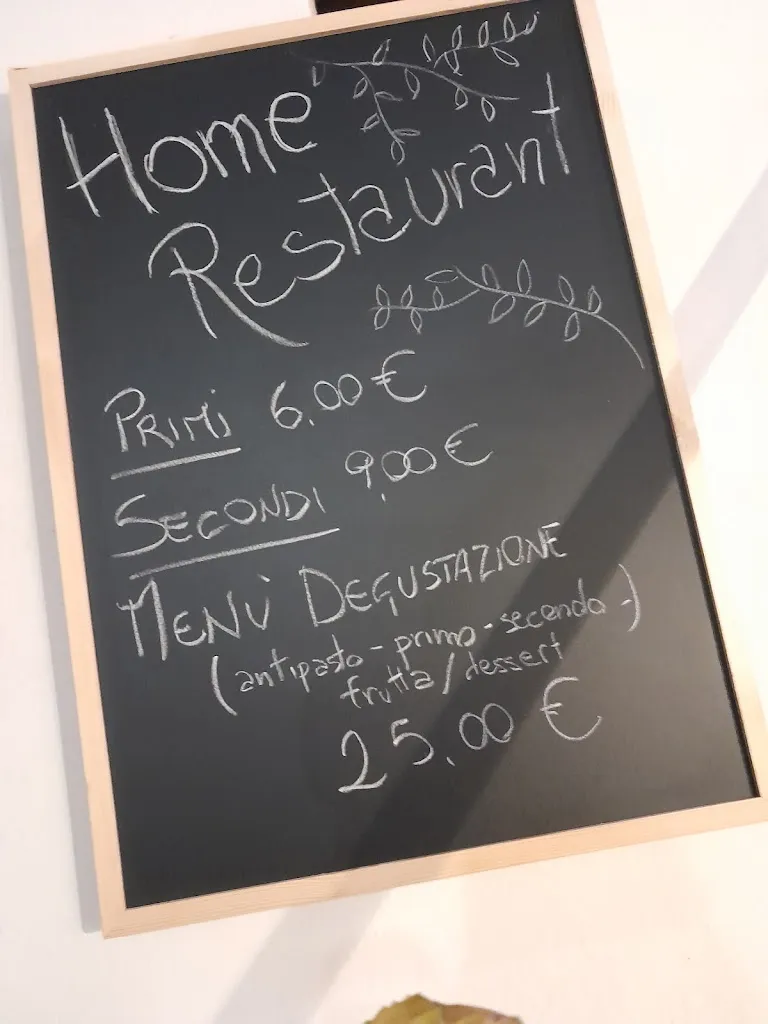 Home
Restaurant
PRIMI 6,00 €
SECONDI 9,00 €
MENÙ DEGUSTAZIONE
(antipasto - primo - secondo -)
frutta/dessert
25,00 €